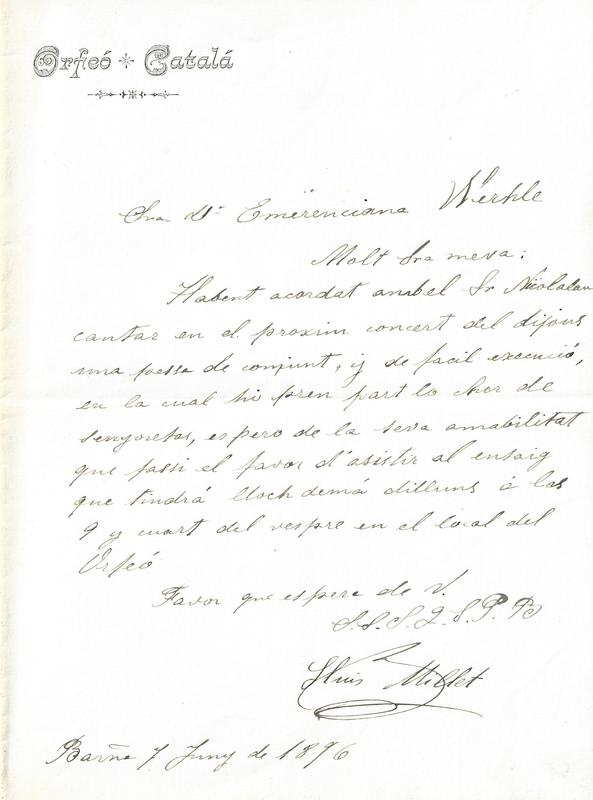 Orfeó Catalá
Sra Dª Emerenciana Wehrle
Molt Sra meva:
Habent acordat anabel Sr Nicolalau
cantar en el proxim concert del dijous
una pessa de conjunt, y de facil execució,
en la cual hi pren part lo chor de
senyoretas, espero de la seva amabilitat
que fassi el favor d'asistir al ensaig
que tindrá lloch demá dilluns á las
9 y cuart del vespre en el local del
Orfeó
Favor que espera de V.
S.S.S.Q.S.P.B
Lluis Millet
Barna 7 Juny de 1896